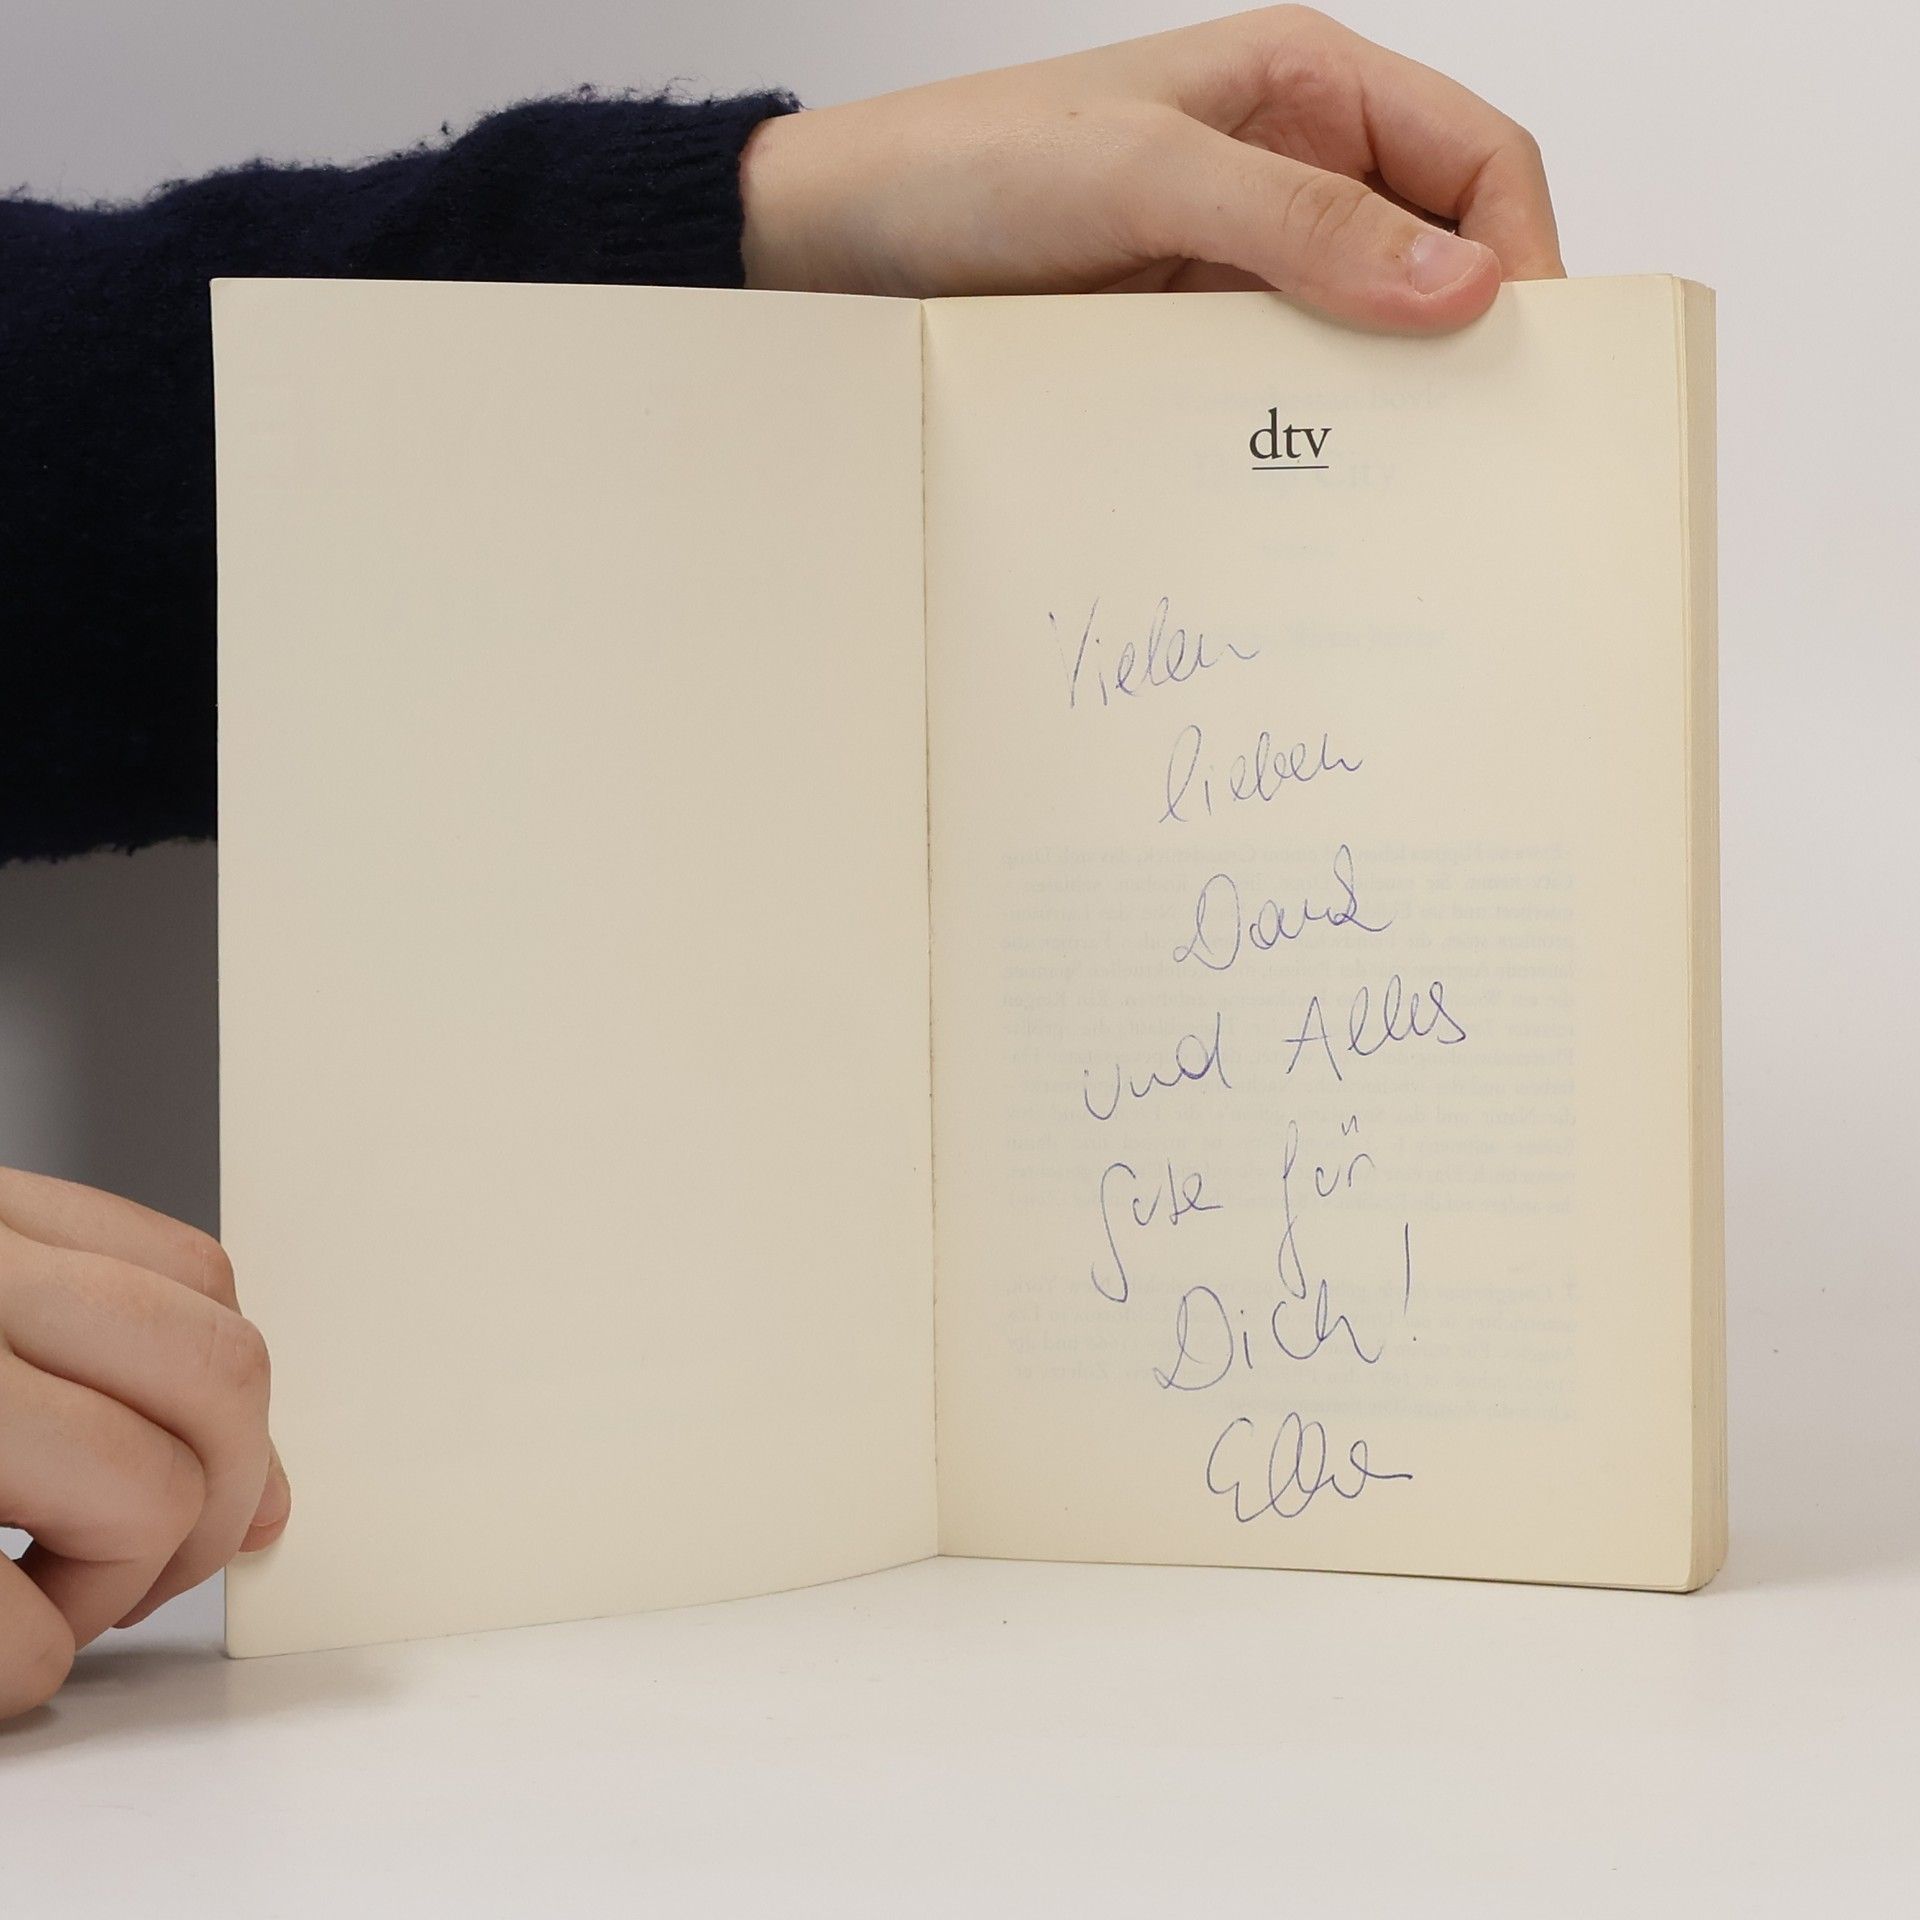 dtv
Vielen
lieben
Dank
und Alles
Gute für
Dich!